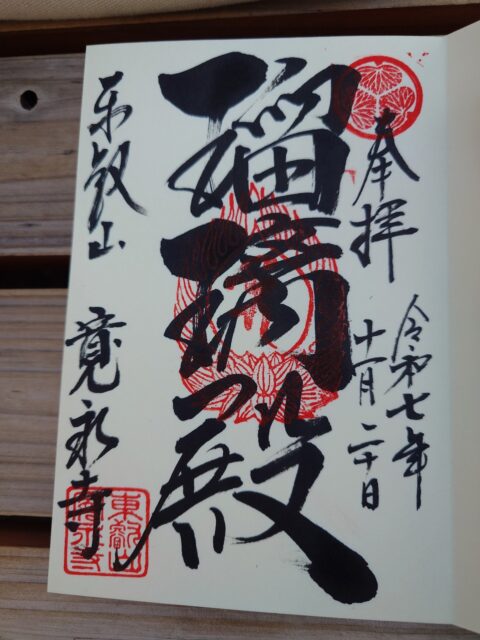 奉拝
令和七年
十一月二十日
瑠璃殿
東叡山
寛永寺
東叡山
寛永寺